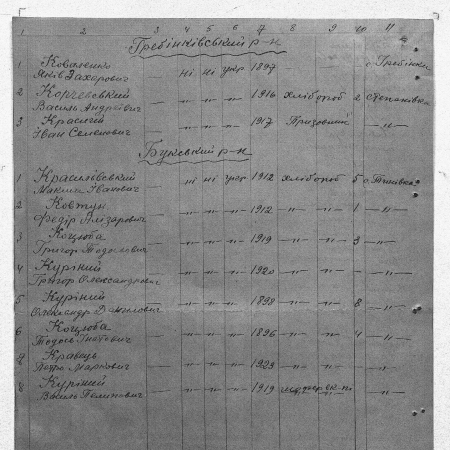 1 2 3 4 5 6 7 8 9 10 11
Гребінківський р-н
1 Коваленко
Яків Захарович — ні ні укр 1897 с. Гребінки
2
Василь Андрійович — „ „ „ 1916 хлібороб 2 Степанівка
3 Красицій
Іван Семенович — „ „ „ 1917 Призовник — „
Букський р-н
1 Красилівський
Максим Іванович — ні ні укр 1912 хлібороб 5
2 Ковтун
Федір Лазарович — „ „ „ 1912 „ „ 1 „
3 Коцюба
Григор Тодосович — „ „ „ 1919 „ „ 3 „
4 Куріний
Григор Олександрович — „ „ „ 1920 „ „ — „
5 Куріний
Олександр Данилович — „ „ „ 1898 „ „ 8 „
6 Коцюба
Тодось Гнатович — „ „ „ 1896 „ „ 4 „
7 Кравець
Петро Маркович — „ „ „ 1923 „ „ — „
8 Куріний
Василь Пилипович — „ „ „ 1919 „